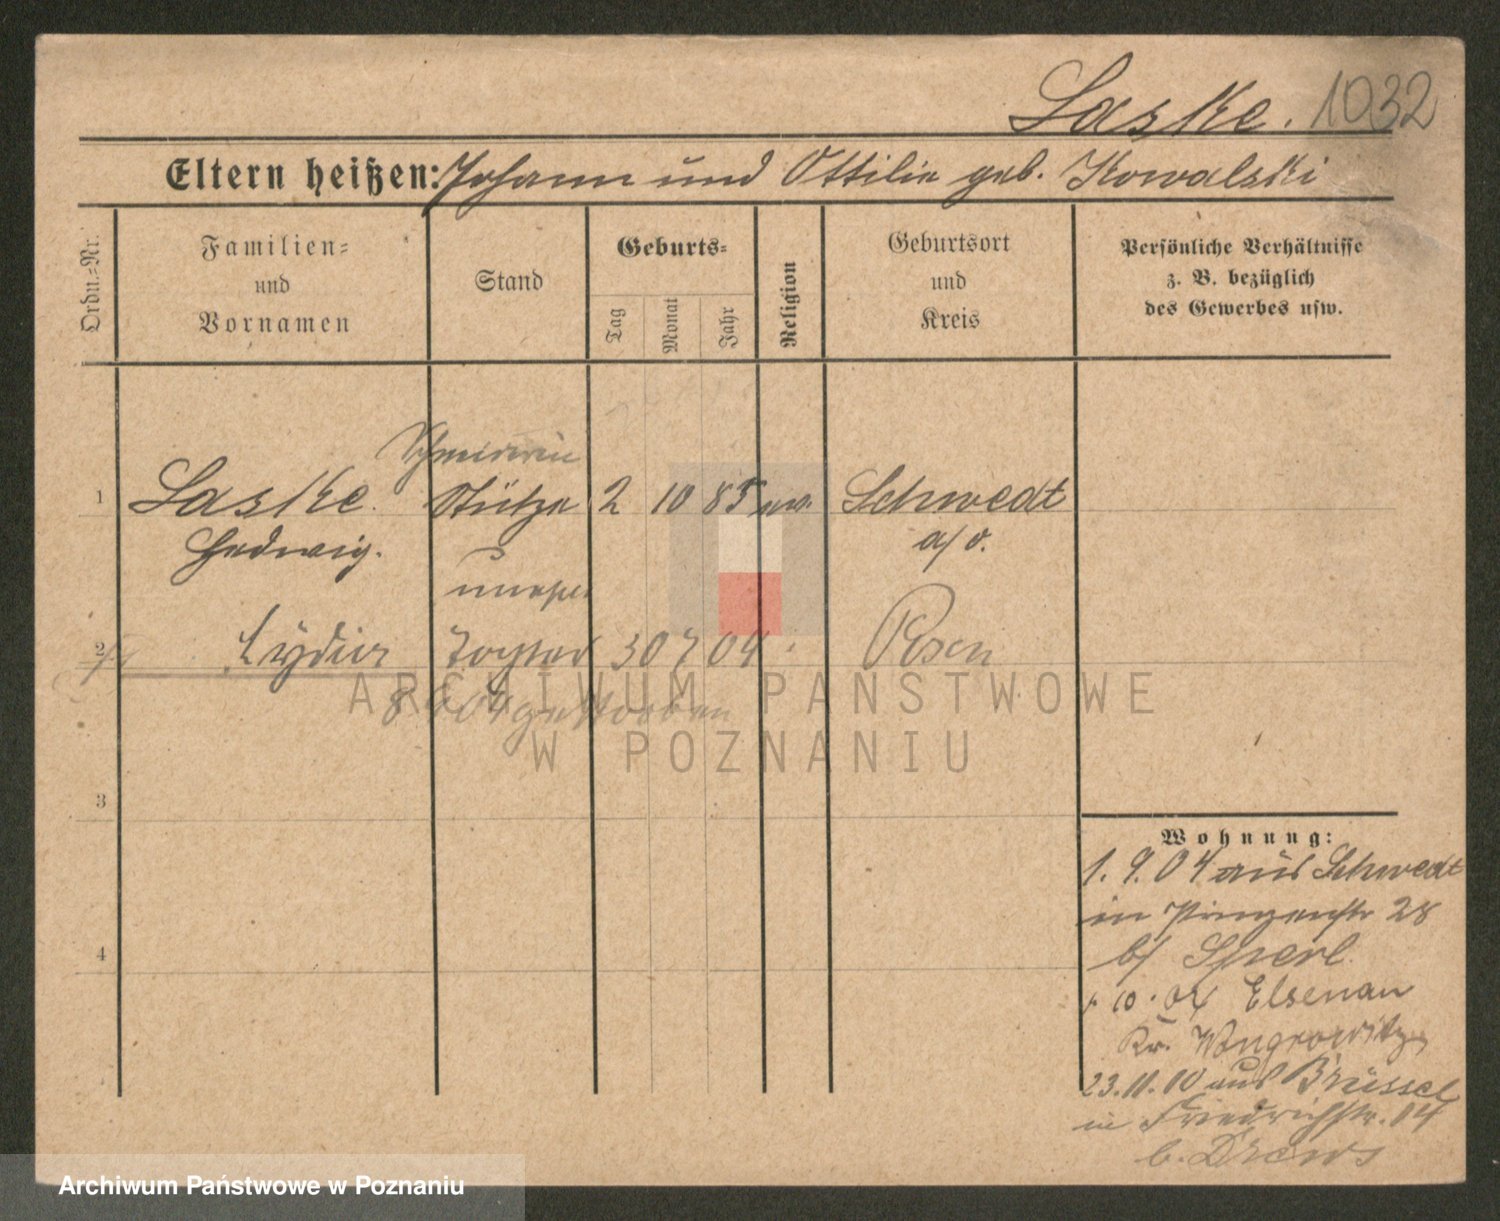 Laske. 1032
Eltern heißen: Johann und Ottilie geb. Kowalski
Ordn.=Nr.
Familien=
und
Vornamen
Stand
Geburts=
Tag
Monat
Jahr
Religion
Geburtsort
und
Kreis
Persönliche Verhältnisse
z. B. bezüglich
des Gewerbes usw.
Schneiderin
1 Laske. Stütze 2 10 85 ev. Schwedt
Hedwig. a/O.
unehel.
2 Lydia Tochter 30 7 04 Posen
gestorben
ARCHIWUM PAŃSTWOWE
W POZNANIU
3
4
Wohnung:
1. 9. 04 aus Schwedt
in Prinzenstr 28
b/ Sperl.
10. 04 Elsenau
Kr. Wongrowitz
23.11.10 aus Brüssel
in Friedrichstr. 14
b. Drews
Archiwum Państwowe w Poznaniu